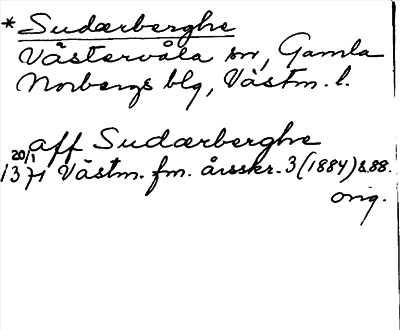 * Sudærberghe
Västervåla sn, Gamla
Norbergs blg, Västm. l.
aff Sudærberghe
20/1 1371 Västm. fm. årsskr. 3 (1884) s. 88.
orig.